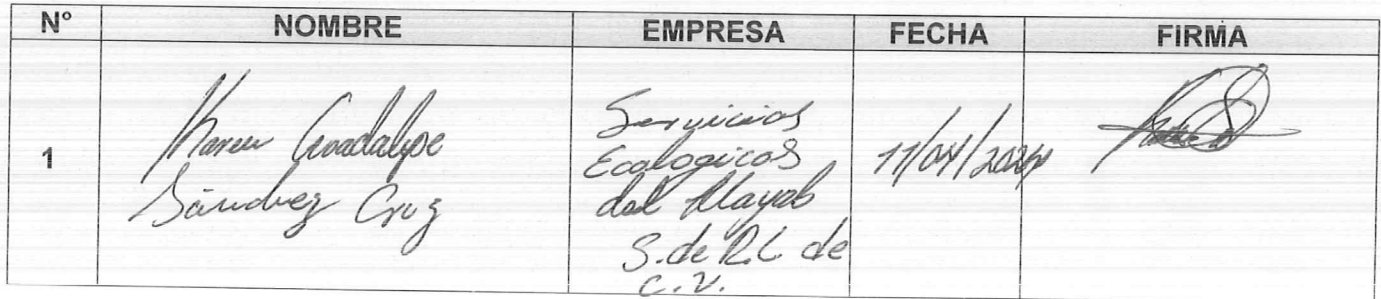 N° NOMBRE EMPRESA FECHA FIRMA
1
Karen Guadalupe
Sánchez Cruz
Servicios
Ecologicos
del Mayab
S. de R.L de
C.V.
11/04/2024